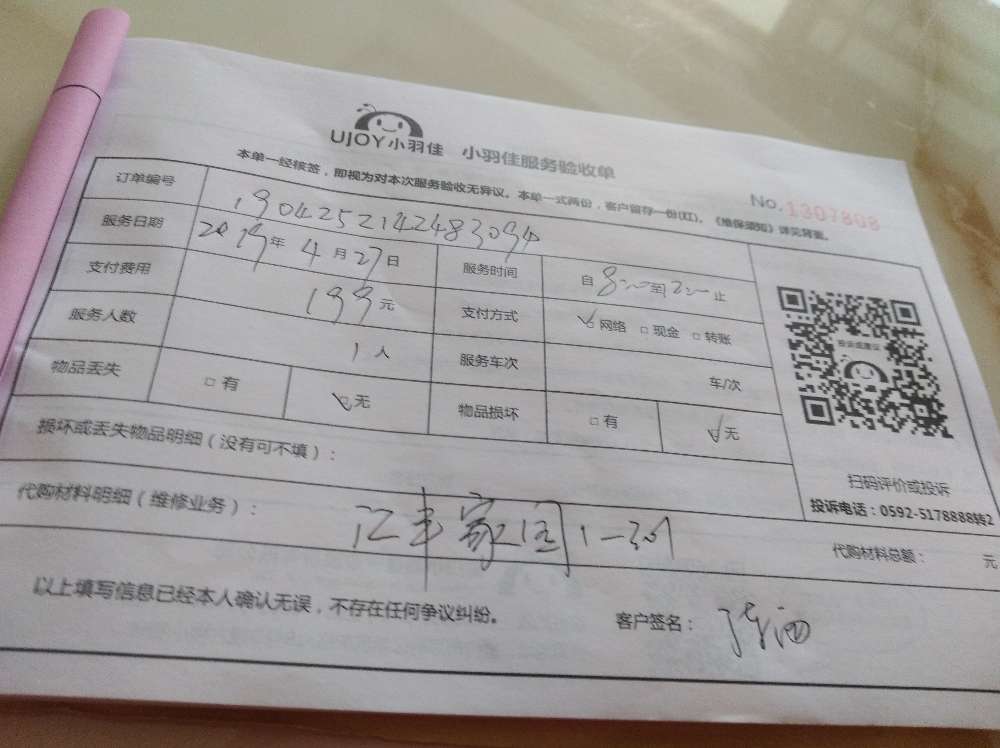 UJOY小羽佳 小羽佳服务验收单
本单一经核签，即视为对本次服务验收无异议。本单一式两份，客户留存一份(红)。《维保须知》详见背面。
No. 1307808
订单编号
服务日期 2019年 4月 27日 服务时间 自 8:00 至 2:00 止
支付费用 199元 支付方式 网络 现金 转账
服务人数 1人 服务车次 车/次
物品丢失 有 无 物品损坏 有 无
投诉或建议
扫码评价或投诉
投诉电话：0592-5178888转2
损坏或丢失物品明细（没有可不填）：
代购材料明细（维修业务）： 家园 代购材料总额： 元
以上填写信息已经本人确认无误，不存在任何争议纠纷。 客户签名：